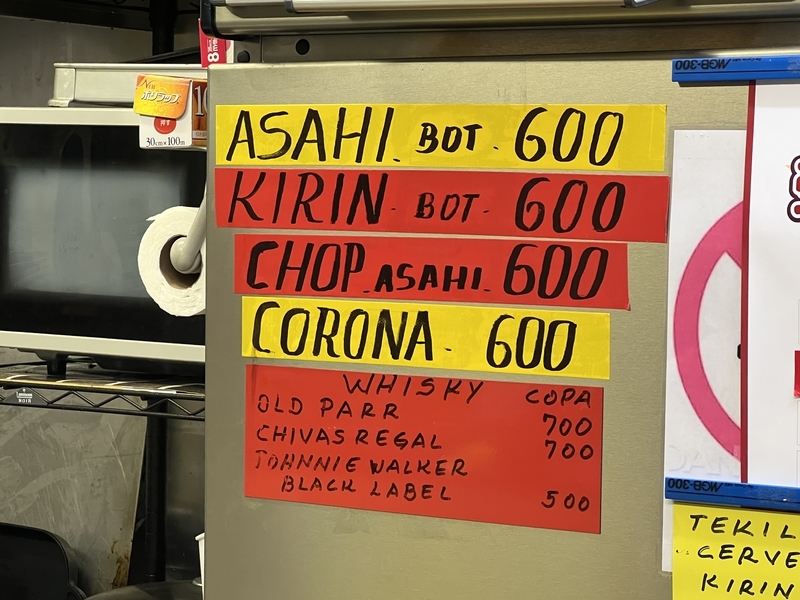 ASAHI. BOT. 600
KIRIN - BOT - 600
CHOP. ASAHI. 600
CORONA - 600
WHISKY COPA
OLD PARR 700
CHIVAS REGAL 700
JOHNNIE WALKER
BLACK LABEL 500
New
ポリラップ
30cm×100m
MGB-300
MGB-300
TEKIL
CERVE
KIRIN